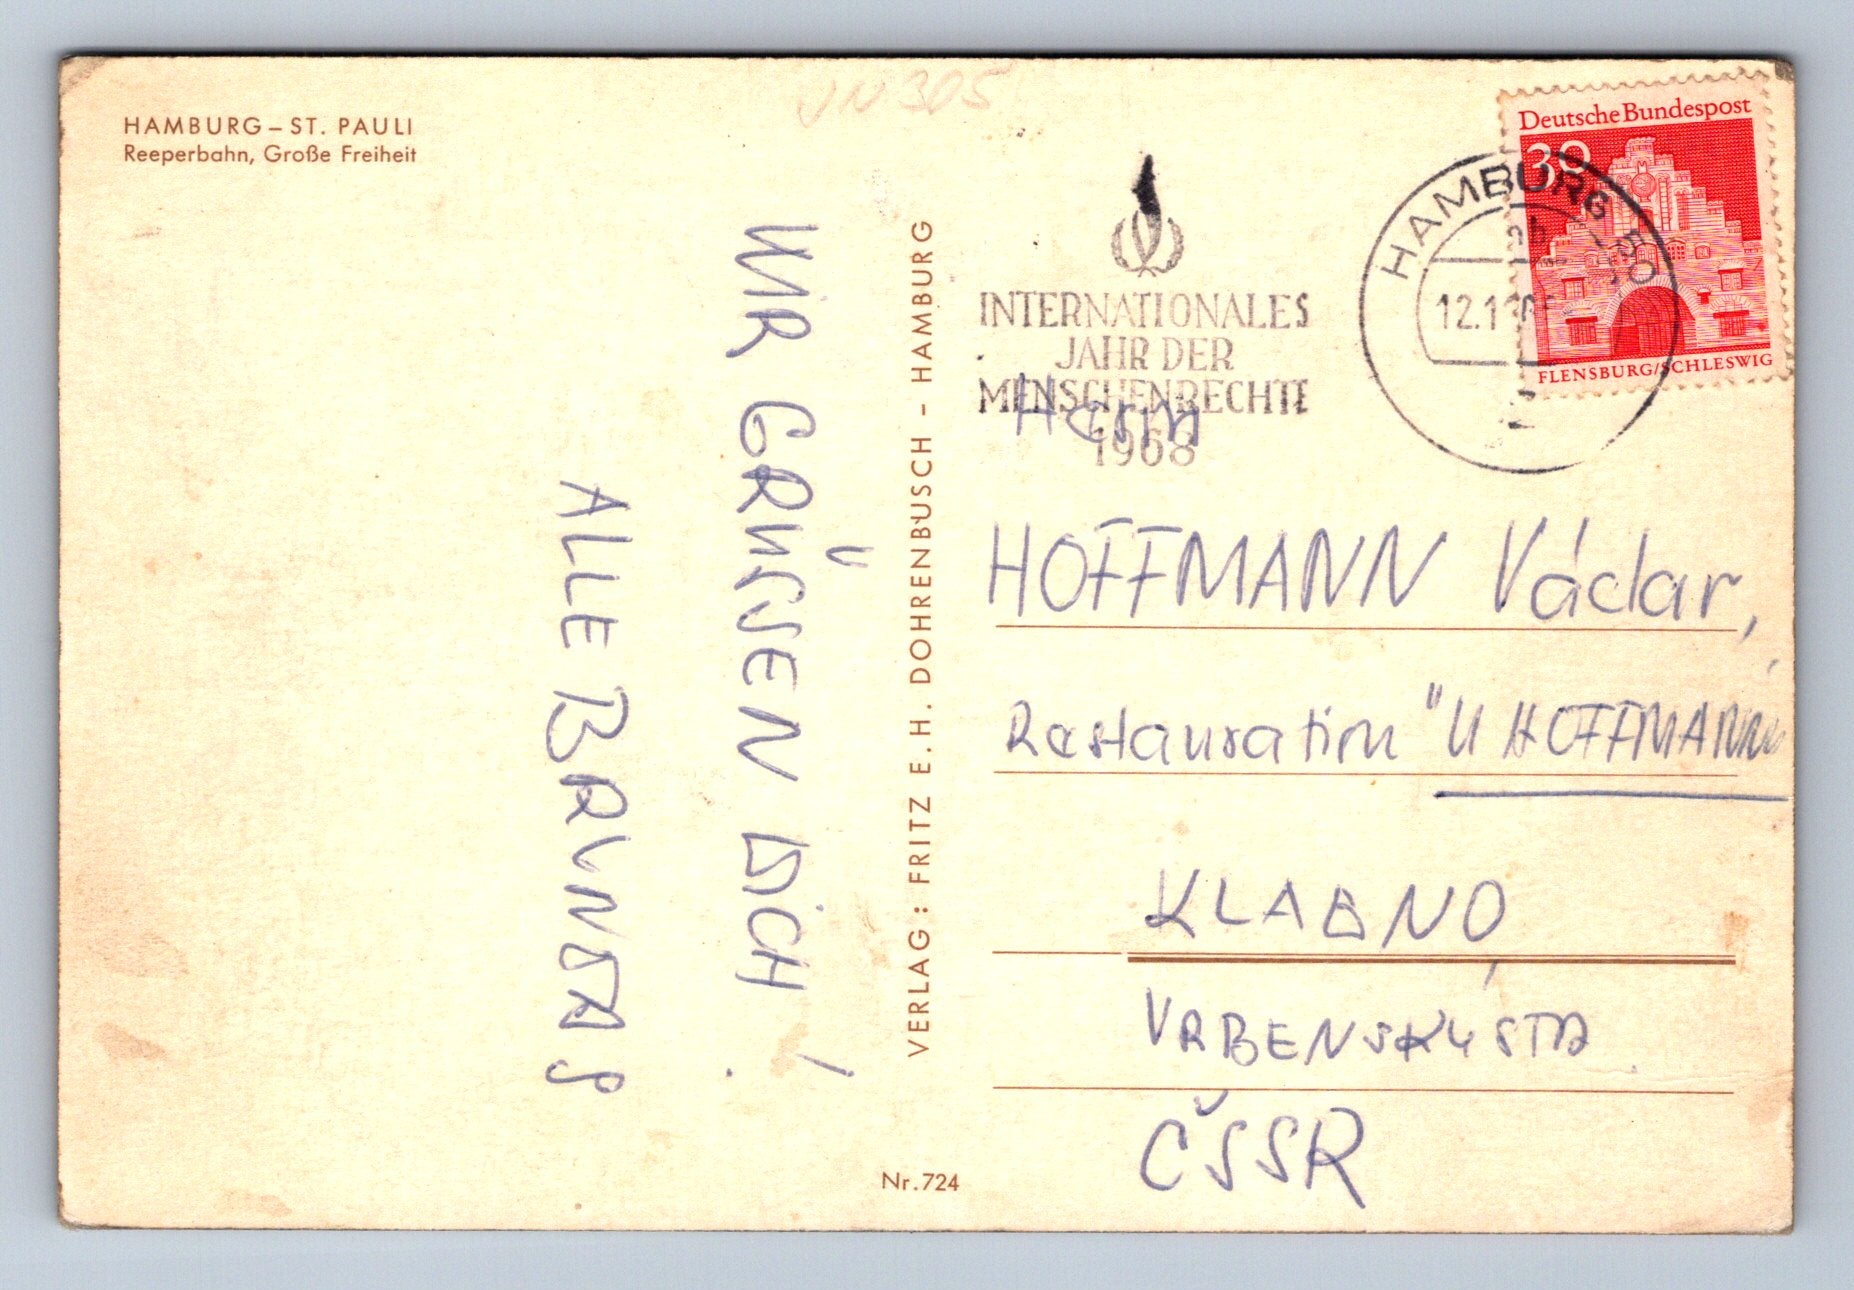 HAMBURG – ST. PAULI
Reeperbahn, Große Freiheit
VN 305
WIR GRÜSSEN DICH!
ALLE BRUNDAS
VERLAG: FRITZ E. H. DOHRENBUSCH - HAMBURG
Nr. 724
INTERNATIONALES
JAHR DER
MENSCHENRECHTE
1968
HAMBURG
12.1
Deutsche Bundespost
30
FLENSBURG/SCHLESWIG
Herrn
HOFFMANN Václav,
Restauration "U HOFFMANNŮ
KLADNO
VRBENSKÁ
ČSSR